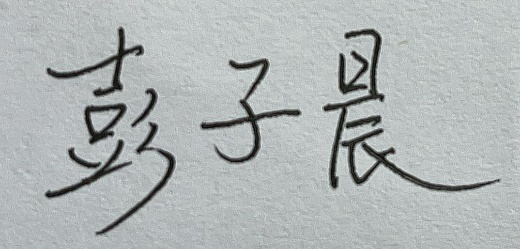 彭子晨